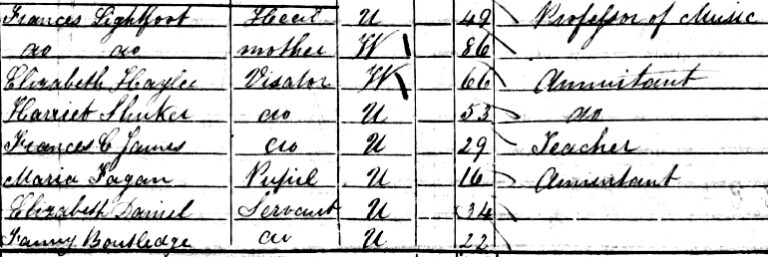 Frances Lightfoot Head U 49 Professor of Music
do do mother W 86
Elizabeth Hayles Visator W 66 Annuitant
Harriet Shuker do U 53 do
Frances C James do U 29 Teacher
Maria Fagan Pupil U 16 Annuitant
Elizabeth Daniel Servant U 34
Fanny Boutledge do U 22